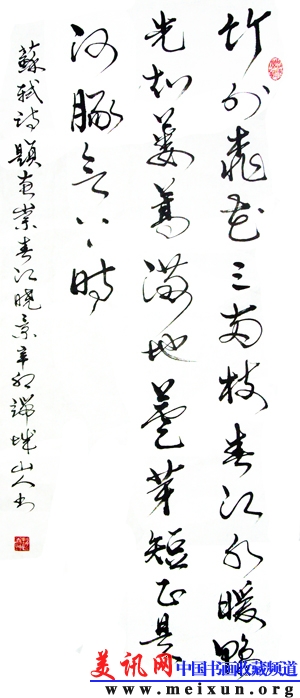 竹外桃花三兩枝春江水暖鴨
先知蔞蒿滿地蘆芽短正是
河豚欲上時
蘇軾詩題惠崇春江曉景辛卯端城山人书
美讯网 中国书画收藏频道
www.meixun.org